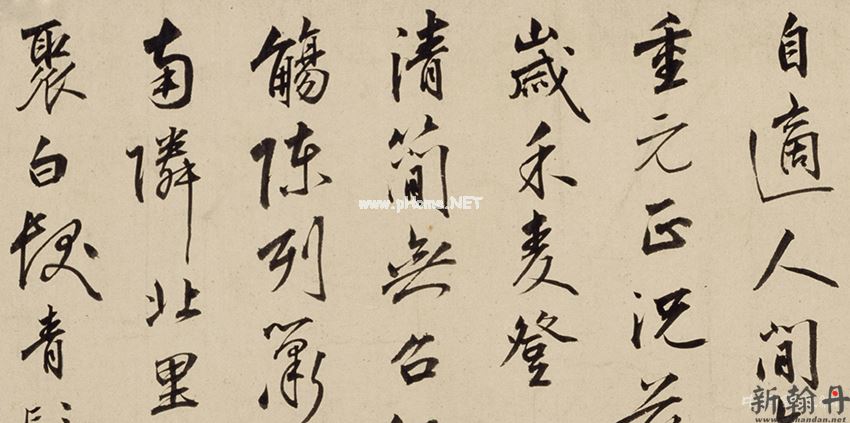 自適人間
重元正況
歲禾麦登
清簡無
觴陳列
南隣北里
聚白髮青
www.pHome.NET
新翰丹